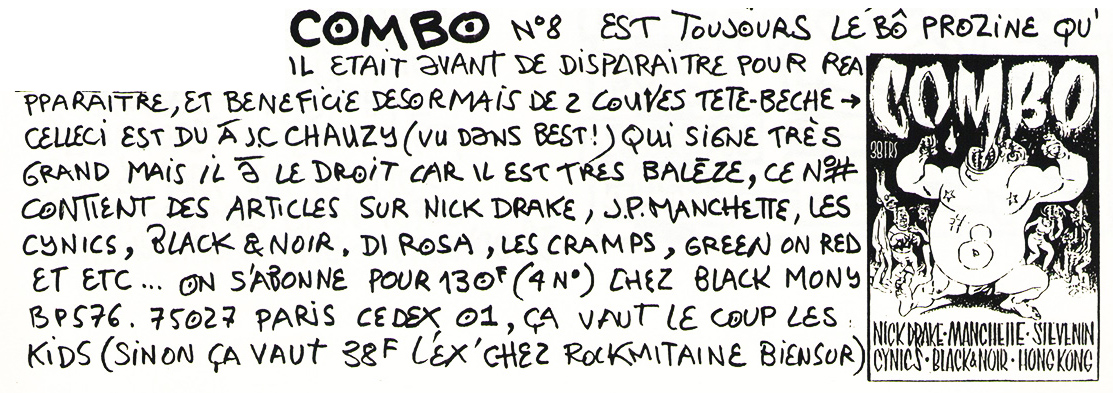 COMBO N°8 EST TOUJOURS LE BÔ PROZINE QU'
IL ETAIT AVANT DE DISPARAITRE POUR REA
PPARAITRE, ET BENEFICIE DESORMAIS DE 2 COUVES TETE-BECHE →
CELLECI EST DU À J.C CHAUZY (VU DANS BEST!) QUI SIGNE TRÈS
GRAND MAIS IL À LE DROIT CAR IL EST TRES BALÈZE, CE N°#
CONTIENT DES ARTICLES SUR NICK DRAKE, J.P. MANCHETTE, LES
CYNICS, BLACK & NOIR, DI ROSA, LES CRAMPS, GREEN ON RED
ET ETC... ON S'ABONNE POUR 130F (4 N°) CHEZ BLACK MONY
BP576. 75027 PARIS CEDEX 01, ÇA VAUT LE COUP LES
KIDS (SINON ÇA VAUT 38F L'EX' CHEZ ROCKMITAINE BIENSUR)
COMBO
38FRS
#
8
NICK DRAKE • MANCHETTE • STEVENIN
CYNICS • BLACK & NOIR • HONG KONG